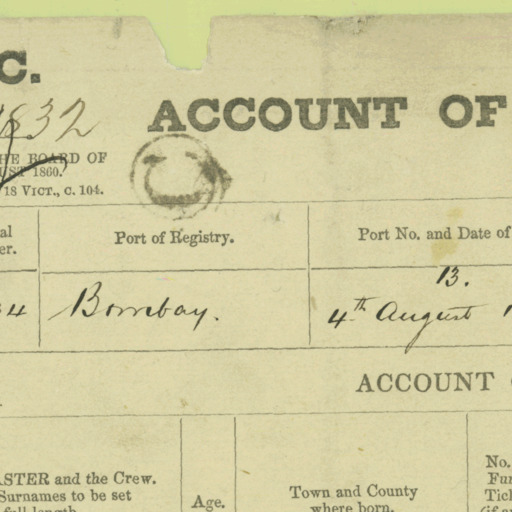 C.
1832
ACCOUNT OF
THE BOARD OF
UST 1860.
18 VICT., C. 104.
C
al
er.
Port of Registry.
Port No. and Date of
34
Bombay.
13.
4th August 1
ACCOUNT
ASTER and the Crew.
Surnames to be set
full length.
Age.
Town and County
where born.
No.
Fun
Tick
(if an